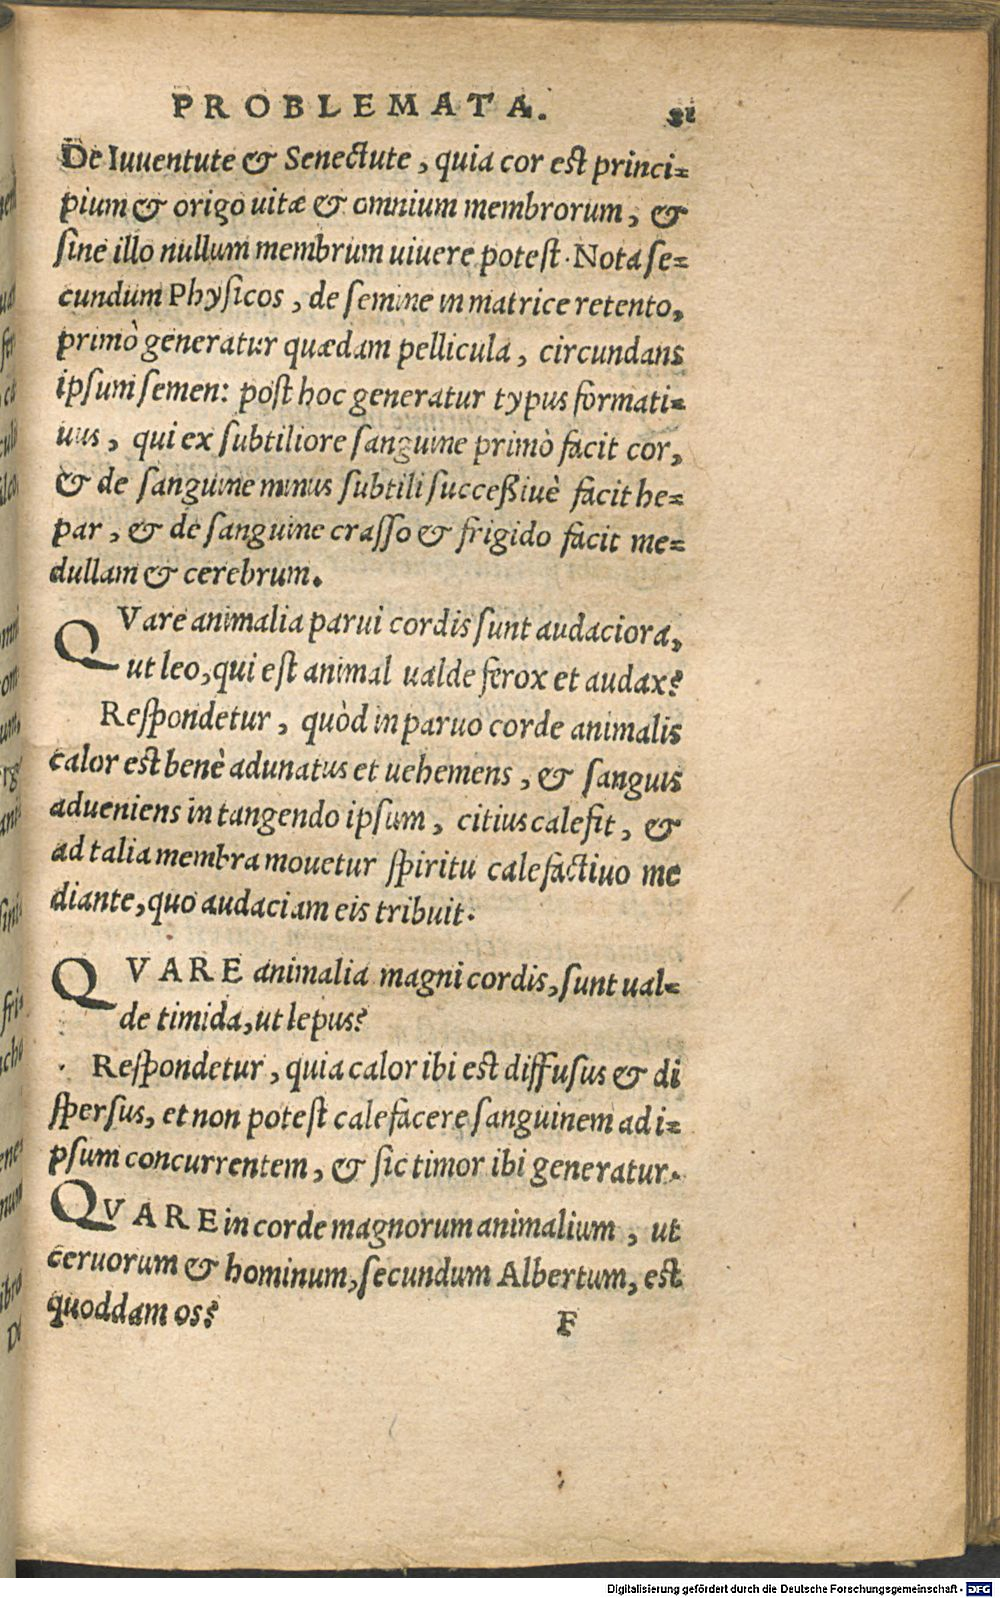 PROBLEMATA. 81
De Iuuentute & Senectute, quia cor est princi=
pium & origo uitæ & omnium membrorum, &
sine illo nullum membrum uiuere potest. Nota se=
cundum Physicos, de semine in matrice retento,
primò generatur quædam pellicula, circundans
ipsum semen: post hoc generatur typus formati=
uus, qui ex subtiliore sanguine primò facit cor,
& de sanguine minus subtili successiuè facit he=
par, & de sanguine crasso & frigido facit me=
dullam & cerebrum.
QVare animalia parui cordis sunt audaciora,
ut leo, qui est animal ualde ferox et audax?
Respondetur, quòd in paruo corde animalis
calor est benè adunatus et uehemens, & sanguis
adueniens in tangendo ipsum, citius calefit, &
ad talia membra mouetur spiritu calefactiuo me
diante, quo audaciam eis tribuit.
QVARE animalia magni cordis, sunt ual=
de timida, ut lepus?
Respondetur, quia calor ibi est diffusus & di
spersus, et non potest calefacere sanguinem ad i=
psum concurrentem, & sic timor ibi generatur.
QVARE in corde magnorum animalium, ut
ceruorum & hominum, secundum Albertum, est
quoddam os?
F
Digitalisierung gefördert durch die Deutsche Forschungsgemeinschaft - DFG